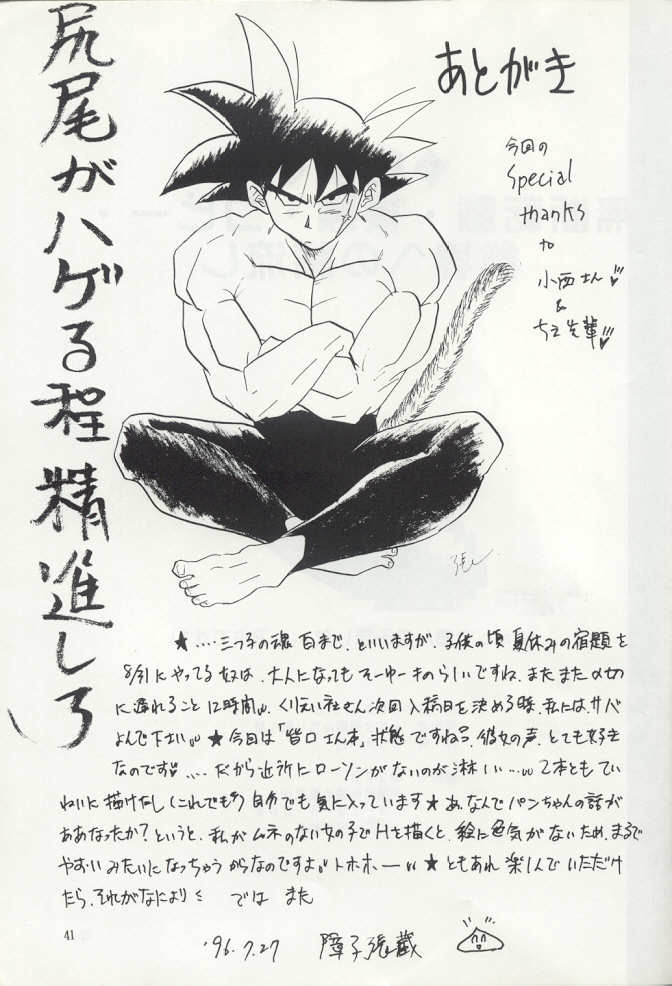 尻尾がハゲる程精進しろ
あとがき
今回の
Special
thanks
to
小西さん
&
先輩
★‥‥三つ子の魂百まで、といいますが、子供の頃夏休みの宿題を
8/31にやってる奴は、大人になってもそーゆーものらしいですね、またまた〆切
に遅れること12時間。くりえい社さん次回入稿日を決める時、私には、サバ
よんで下さい ★今回は「皆口さん本」状態ですね、彼女の声、とても好き
なのです ‥‥だから近所にローソンがないのが淋しい… 2本ともてい
ねいに描けたし(これでも)自分でも気に入っています★あ、なんでパンちゃんの話が
ああなったか?というと、私がムネのない女の子でHを描くと、絵に色気がないため、まるで
やおいみたいになっちゃうからなのですよ トホホー ★ともあれ楽しんでいただけ
たら、それがなにより では また
41
'96.7.27 障子張蔵